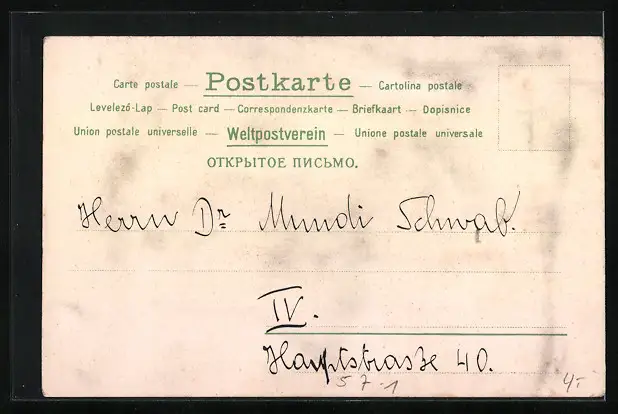 Carte postale — Postkarte — Cartolina postale
Levelező-Lap — Post card — Correspondenzkarte — Briefkaart — Dopisnice
Union postale universelle — Weltpostverein — Unione postale universale
ОТКРЫТОЕ ПИСЬМО.
Herrn Dr Mundi Schwab.
IV.
Hauptstrasze 40.
5 7-1
4,-